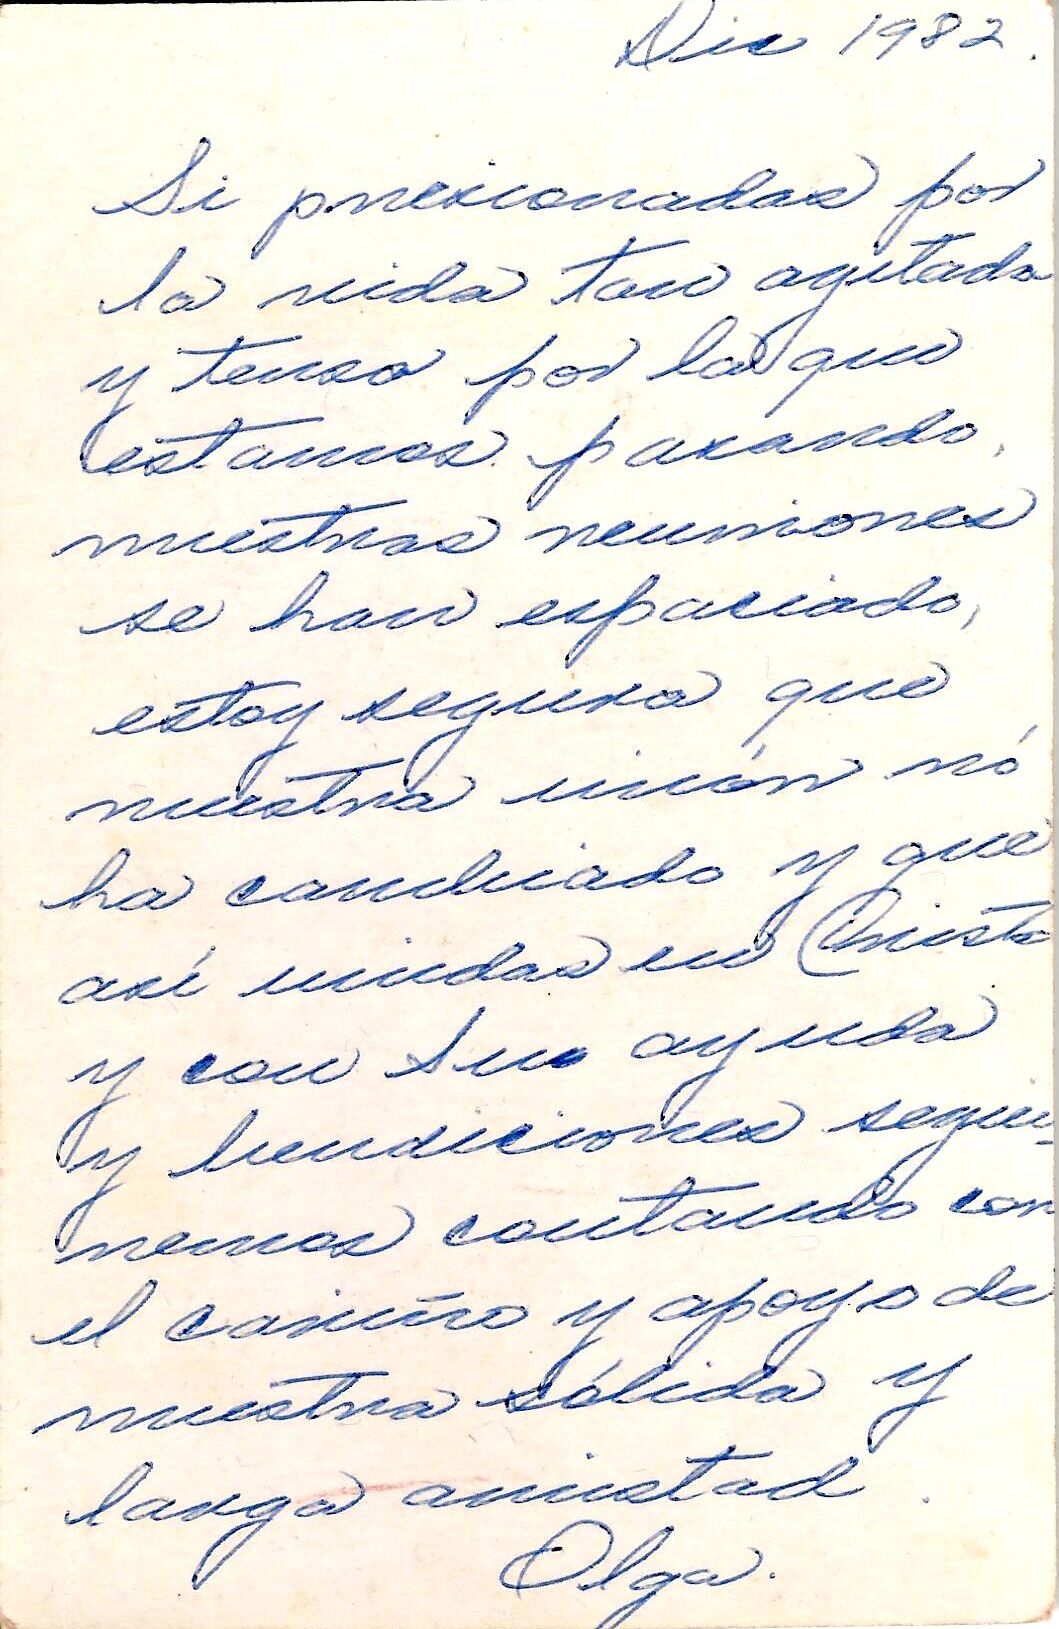 Dic 1982.
Si presionadas por
la vida tan agitada
y tensa por la que
estamos pasando,
nuestras reuniones
se han espaciado,
estoy segura que
nuestra unión nó
ha cambiado y que
así unidas en Cristo
y con Su ayuda
y bendiciones segui-
remos contando con
el cariño y apoyo de
nuestra sólida y
larga amistad.
Olga.